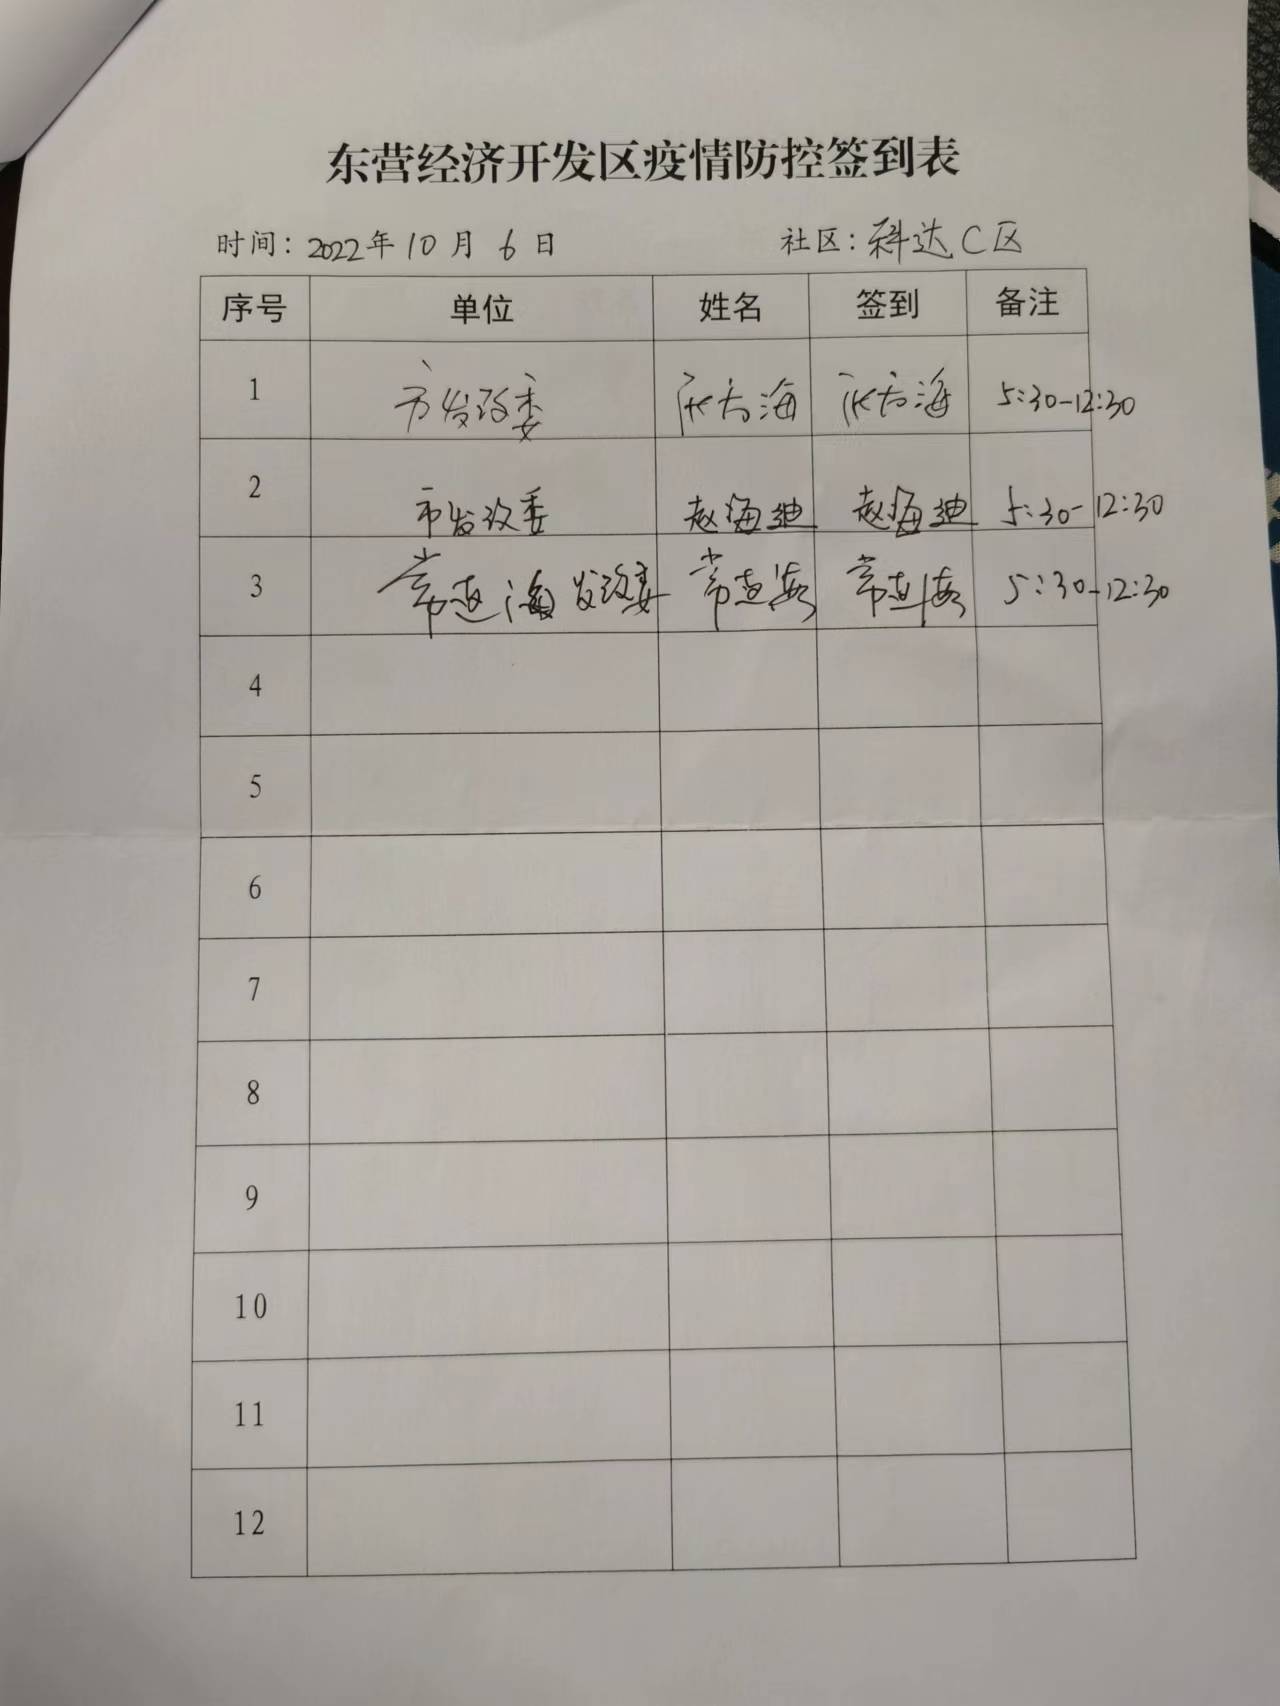 东营经济开发区疫情防控签到表
时间：2022年10月6日 社区：科达C区
序号 单位 姓名 签到 备注
1 市发改委 海 海 5:30-12:30
2 市发改委 赵海迪 赵海迪 5:30-12:30
3 常 海发改委 常 海 常 海 5:30-12:30
4
5
6
7
8
9
10
11
12